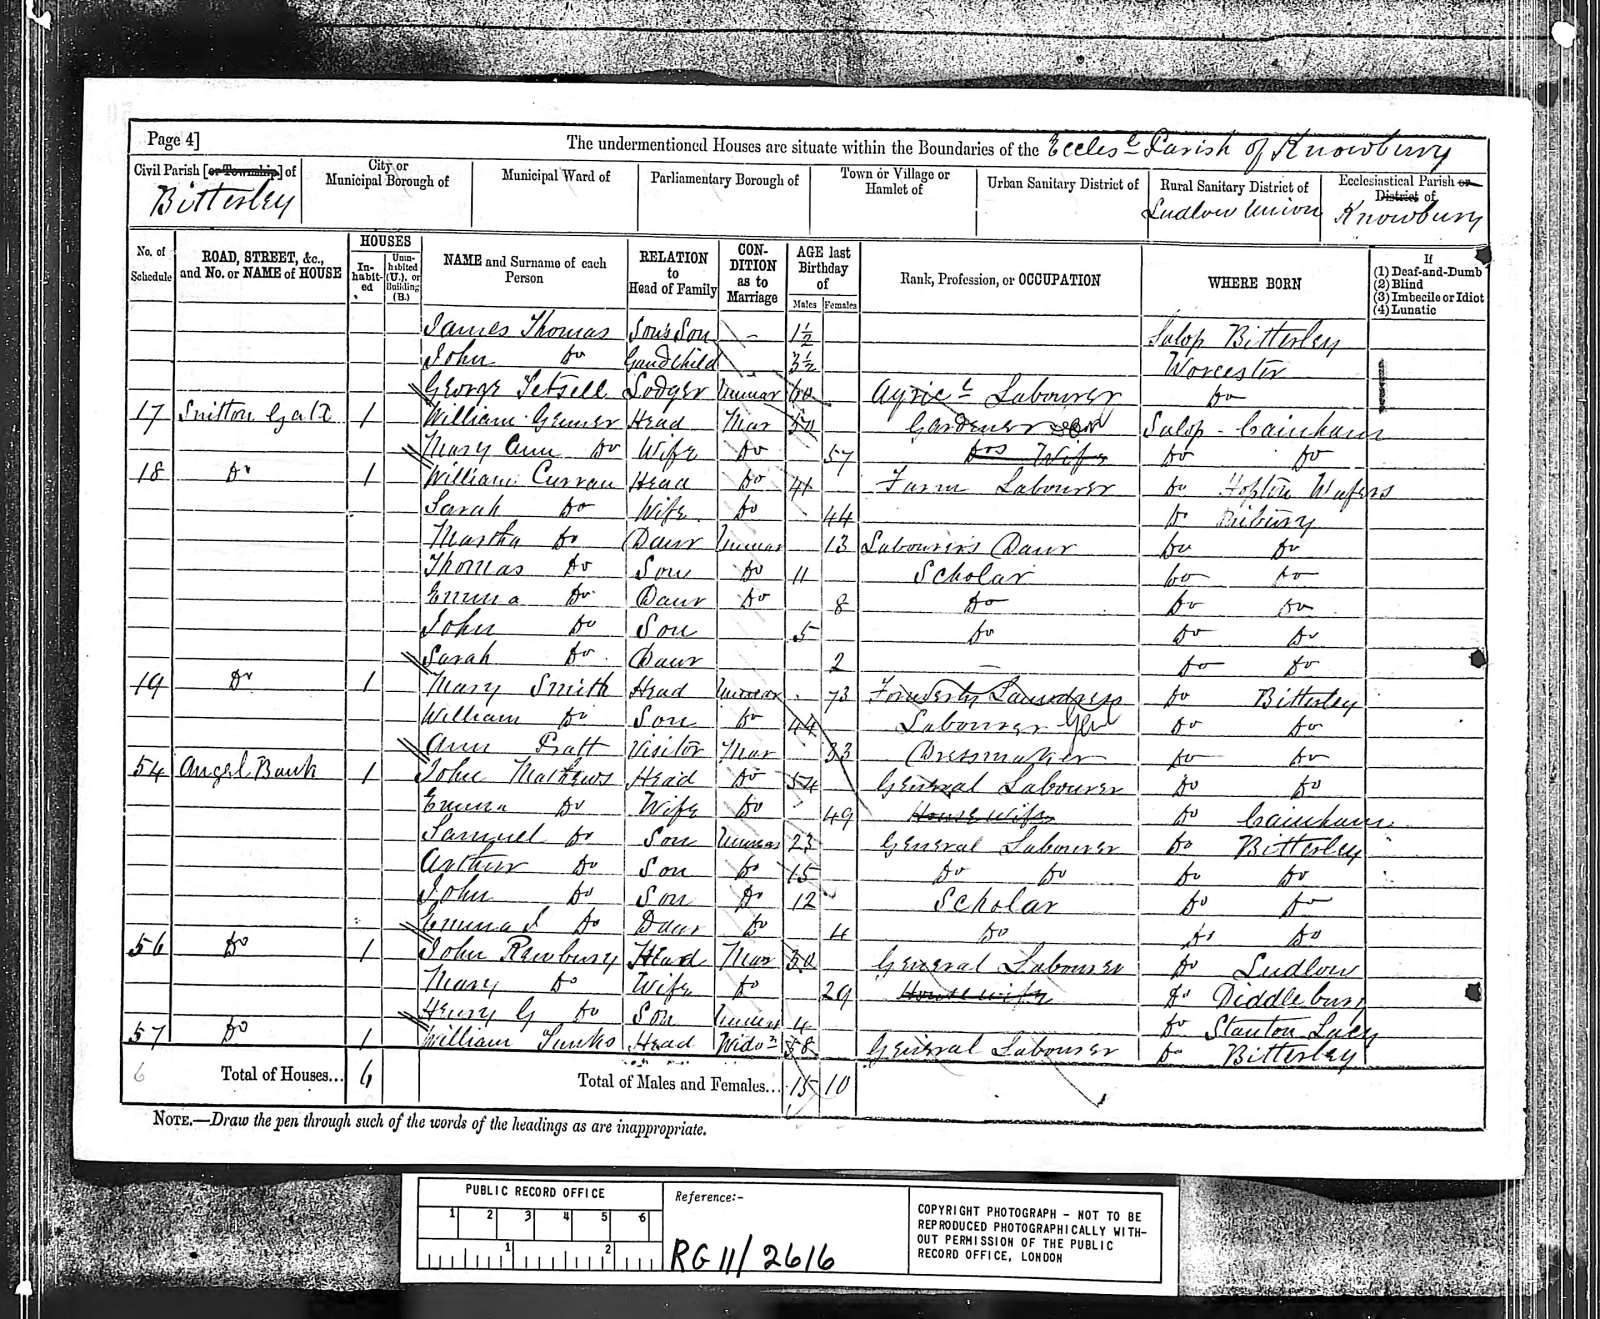 Page 4]
The undermentioned Houses are situate within the Boundaries of the Eccles^l Parish of Knowbury
Civil Parish [or Township] of
Bitterley
City or
Municipal Borough of
Municipal Ward of
Parliamentary Borough of
Town or Village or
Hamlet of
Urban Sanitary District of
Rural Sanitary District of
Ludlow Union
Ecclesiastical Parish or
District of
Knowbury
No. of
Schedule
ROAD, STREET, &c.,
and No. or NAME of HOUSE
HOUSES
In-
habit-
ed
Unin-
habited
(U.), or
Building
(B.)
NAME and Surname of each
Person
RELATION
to
Head of Family
CON-
DITION
as to
Marriage
AGE last
Birthday
of
Males Females
Rank, Profession, or OCCUPATION
WHERE BORN
If
(1) Deaf-and-Dumb
(2) Blind
(3) Imbecile or Idiot
(4) Lunatic
James Thomas Son's Son - 1½ Salop Bitterley
John Do Grandchild 3½ Worcester
George Tetsell Lodger Unmar 60 Agric^l Labourer Do
17 Snitton Gate 1 William Head Mar 50 Gardener Salop - Cainham
Mary Ann Do Wife Do 57 Wife Do Do
18 Do 1 William Curran Head Do 41 Farm Labourer Do Hopton Wafers
Sarah Do Wife Do 44 Do
Martha Do Daur Unmar 13 Labourers Daur Do Do
Thomas Do Son Do 11 Scholar Do Do
Emma Do Daur Do 8 Do Do Do
John Do Son 5 Do Do Do
Sarah Do Daur 2 — Do Do
19 Do 1 Mary Smith Head Unmar 73 Formerly Laundress Do Bitterley
William Do Son Do 44 Labourer Gen Do Do
Ann Pratt Visitor Mar 33 Dressmaker Do Do
54 Angel Bank 1 John Mathews Head Do 54 General Labourer Do Do
Emma Do Wife Do 49 House wife Do Cainham
Samuel Do Son Unmar 23 General Labourer Do Bitterley
Arthur Do Son Do 15 Do Do Do Do
John Do Son Do 12 Scholar Do Do
Emma J Do Daur Do 4 Do Do Do
56 Do 1 John Rewbury Head Mar 30 General Labourer Do Ludlow
Mary Do Wife Do 29 House wife Do Diddlebury
Henry G Do Son Unmar 4 Do Stanton Lacy
57 Do 1 William Head Wido^r 58 General Labourer Do Bitterley
6 Total of Houses... 6 Total of Males and Females... 15 10
NOTE.—Draw the pen through such of the words of the headings as are inappropriate.
PUBLIC RECORD OFFICE
1 2 3 4 5 6
1 2
Reference:-
RG 11/2616
COPYRIGHT PHOTOGRAPH - NOT TO BE
REPRODUCED PHOTOGRAPHICALLY WITH-
OUT PERMISSION OF THE PUBLIC
RECORD OFFICE, LONDON